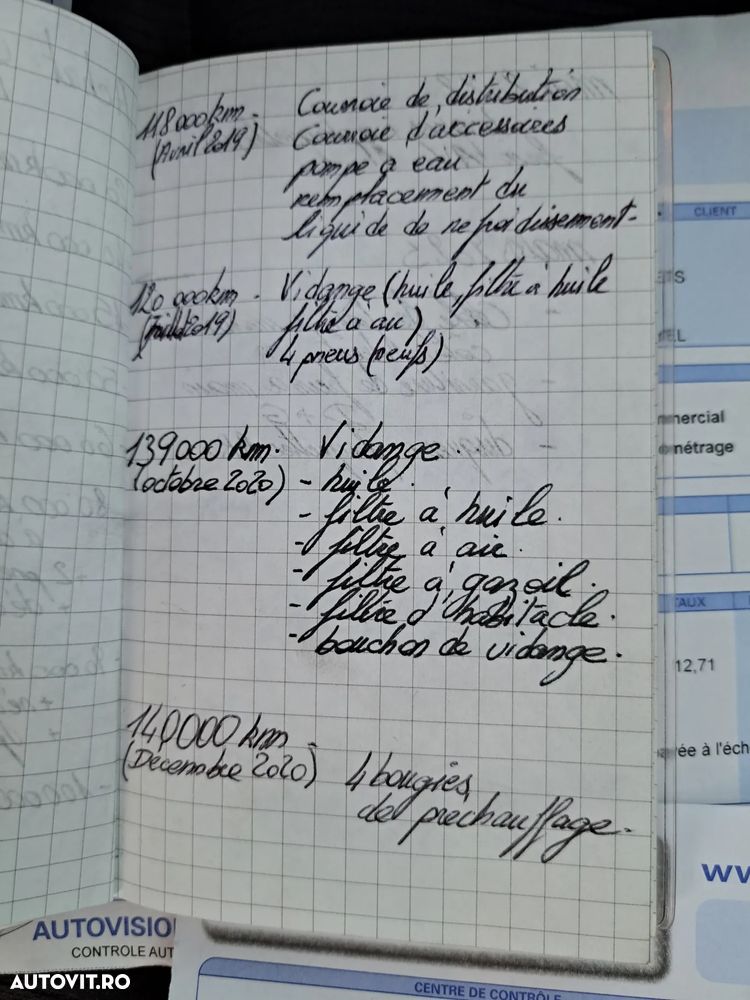 118000km - Courroie de distribution
(Avril 2019) Courroie d'accessoires
pompe a eau
remplacement du
liquide de refroidissement-
120 000km - Vidange (huile, filtre à huile
(Juillet 2019) filtre à air)
4 pneus (neufs)
139000 km. Vidange.
(octobre 2020) - huile.
- filtre à huile.
- filtre à air.
- filtre à gazoil.
- filtre d'habitacle.
- bouchon de vidange.
140000 km -
(Decembre 2020) 4 bougies
de préchauffage.
CLIENT
mercial
métrage
AUX
12,71
ée à l'éch
ww
AUTOVISIO
CONTROLE AUT
CENTRE DE CONTRÔLE
AUTOVIT.RO